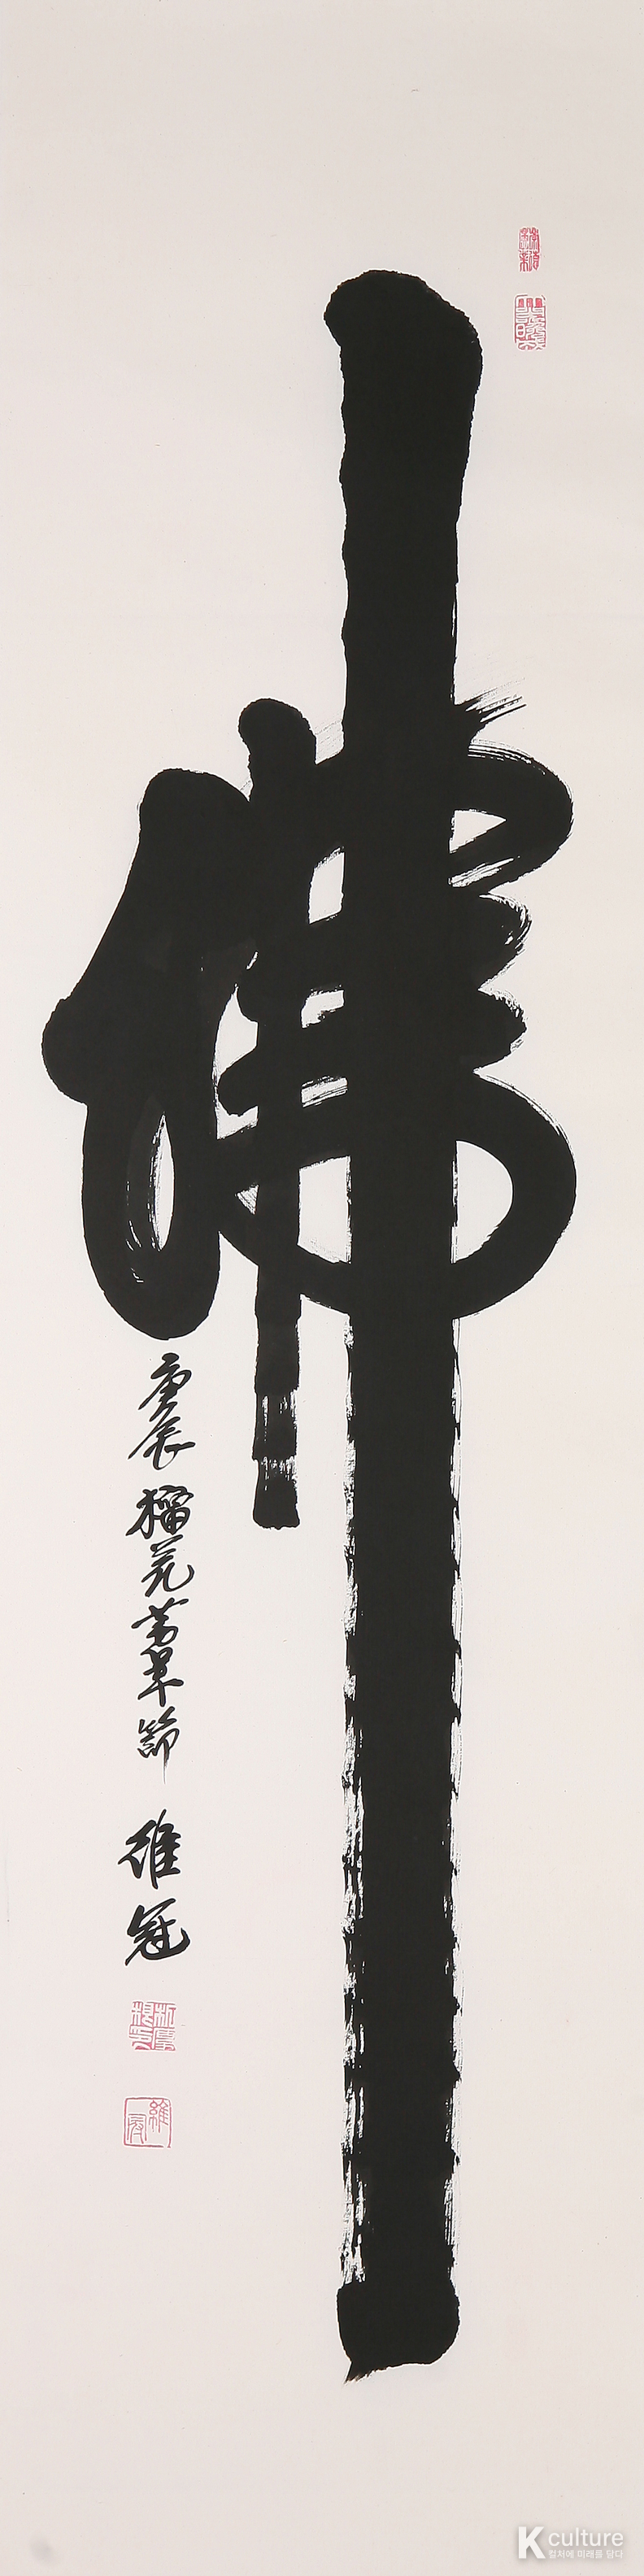 佛
庚辰榴花芳草節
維冠
K culture
컬처에 미래를 담다